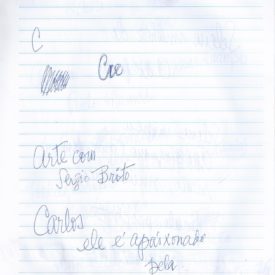 C
Coe
Arte com
Sérgio Brito
Carlos
ele é apaixonado
pela